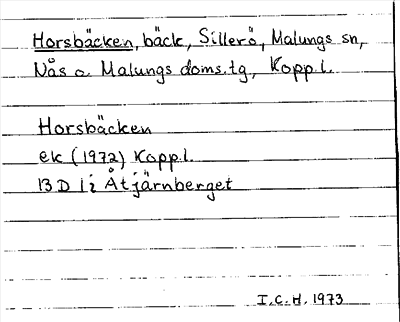 Horsbäcken, bäck, Sillerö, Malungs sn,
Nås o. Malungs doms.tg., Kopp.l.
Horsbäcken
ek (1972) Kopp.l.
13 D 1 i Åtjärnberget
I.C.H. 1973